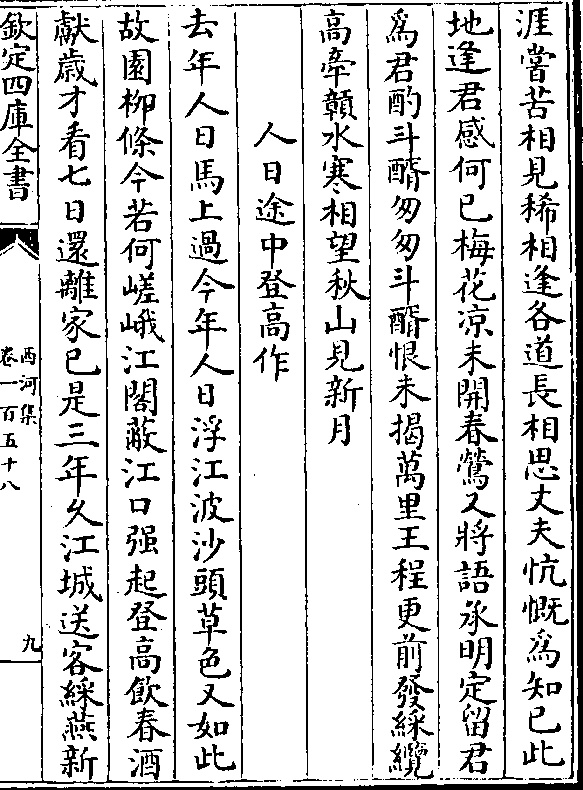 涯嘗苦相見稀相逢各道長相思丈夫忼慨爲知已此
地逢君感何已梅花凉未開春鶯又將語承明定留君
爲君酌斗醑匆匆斗醑恨未揭萬里王程更前發綵纜
高牽贛水寒相望秋山見新月
人日途中登高作
去年人日馬上過今年人日浮江波沙頭草色又如此
故園柳條今若何嵯峨江閣蔽江口强起登高飲春酒
獻歲才看七日還離家已是三年久江城送客綵燕新
欽定四庫全書
西河集
卷一百五十八
九